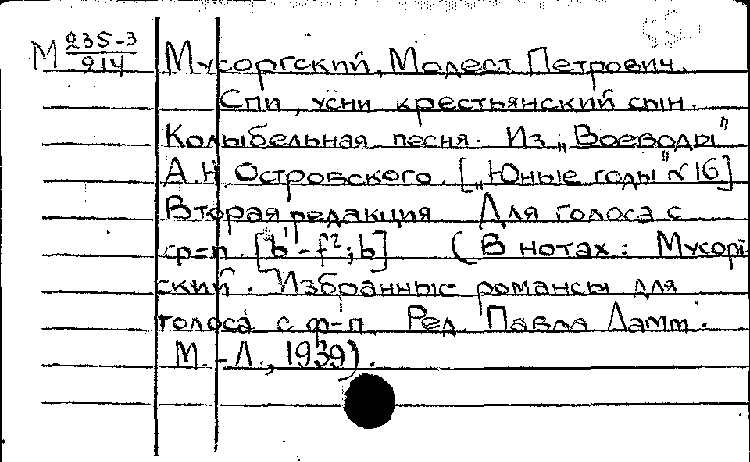 М 235-3/914 Мусоргский, Модест Петрович.
Спи, усни крестьянский сын.
Колыбельная песня. Из „Воеводы"
А.Н. Островского. [„Юные годы" №16]
Вторая редакция Для голоса с
ф-п. [b¹-f²; b] (В нотах: Мусорг
ский. Избранные романсы для
голоса с ф-п. Ред. Павла Ламм.
М.-Л., 1939).